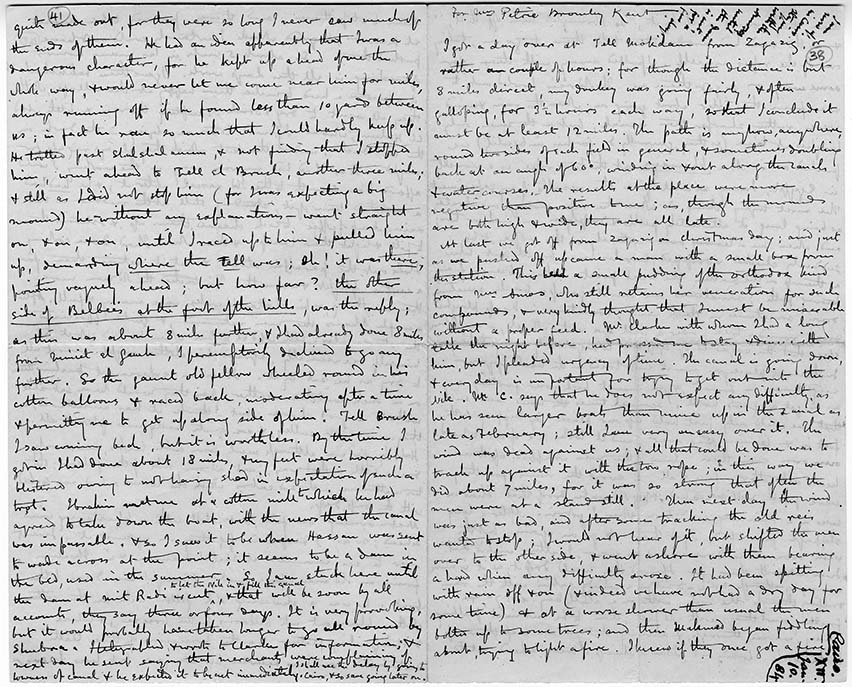 41
quite made out, for they were so long I never saw much of
the ends of them. He had an idea apparently that I was a
dangerous character, for he kept up ahead of me the
whole way, & would never let me come near him for miles,
always running off if he found less than 10 yards between
us; in fact he ran so much that I could hardly keep up.
He trotted past & not finding that I stopped
him, went ahead to Tell el Brush, another three miles,
& still as I did not stop him (for I was expecting a big
mound) he without any explanations went straight
on, & on, & on, until I raced up to him & pulled him
up, demanding where the Tell was; Oh! it was there,
pointing vaguely ahead; but how far? the other
side of Belbeis at the foot of the hills, was the reply;
as this was about 8 mile further, & I had already done 8 miles
from Miniet el Gamh, I peremptorily declined to go any
further. So the gaunt old fellow wheeled round in his
cotton balloons & raced back, moderating after a time
& permitting me to get up along side of him. Tell Brush
I saw coming back, but it is worthless. By the time I
got in I had done about 18 miles, & my feet were horribly
blistered owing to not having shod in expectation of such a
trot. Ibrahim met me at a cotton mill to which he had
agreed to take down the boat, with the news that the canal
was impassable. & so I saw it to be when Hassan was sent
to wade across at the point; it seems to be a dam in
the bed, used in the summer. So I am stuck here until
to let the Nile in & fill the canal
the dam at Mit Radi is cut, & that will be soon by all
accounts, they say three or four days. It is very provoking,
but it would probably have taken longer to go all round by
Shubra. I telegraphed & wrote to Clarke for information, &
next day he sent saying that merchants were complaining of
lowness of canal & he expected it to be cut immediately.
38
For Mrs Petrie Bromley Kent
I got a day over at Tell Mokdam from Zagazig or
rather a couple of hours: for though the distance is but
8 miles direct, my donkey was going fairly, & often
galloping, for 3½ hours each way, so that I conclude it
must be at least 12 miles. The path is anyhow, anywhere,
round two sides of each field in general, & sometimes doubling
back at an angle of 60°, winding in & out along the canals
& water courses. The results at the place were more
negative than positive ; as, though the mounds
are both high & wide, they are all late.
At last we got off from Zagazig on Christmas day; and just
as we pushed off up came a man with a small box from
the station. This held a small pudding of the orthodox kind
from Mrs Amos, who still retains her veneration for such
compounds, & very kindly thought that I must be miserable
without a proper feed. Mr Clarke with whom I had a long
talk the night before, had me to stay & with
him, but I pleaded urgency of time. The canal is going down,
& every day is important for trying to get out into the
Nile. Mr C. says that he does not expect any difficulty, as
he has seen larger boats than mine up in the canal as
late as February; still I am very uneasy over it. The
wind was dead against us; & all that could be done was to
track up against it with the tow rope; in this way we
did about 7 miles, for it was so strong that often the
men were at a stand still. Then next day the wind
was just as bad, and after some tracking the old reis
wanted to stop; I would not hear of it, but shifted the men
over to the other side, & went ashore with them bearing
a hand when any difficulty arose. It had been spitting
with rain off & on (& indeed we have not had a dry day for
some time) & at a worse shower than usual the men
bolted up to some trees; and then Mahmud began fiddling
about trying to light a fire. I knew if they once got a fire
Cairo.
XII
Jan.
10.
84